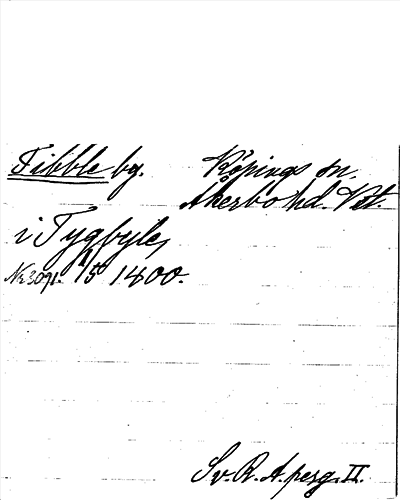 Fibble by. Köpings sn.
Åkerbo hd. Vstl.
i Tygbyle,
Nr 3091. 1/5 1400.
Sv. R. A. perg. II.